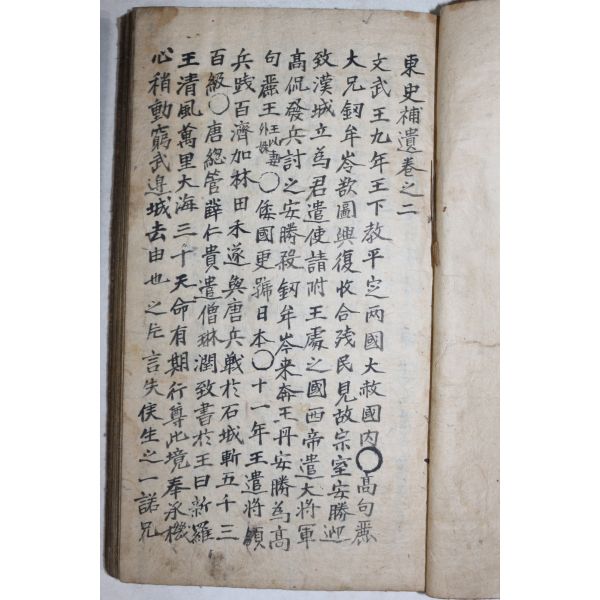 東史補遺卷之二
文武王九年王下教平定两國大赦國内○高句麗
大兄釰牟岑欲圖興復收合残民見故宗室安勝迎
致漢城立為君遣使請附王處之國西帝遣大將軍
高侃發兵討之安勝殺釰牟岑来奔王丹安勝為高
句麗王王以妻○倭國更號日本○十一年王遣將領
兵践百濟加林田禾遂與唐兵戦於石城斬五千三
百級○唐總管薛仁貴遣僧琳潤致書於王曰新羅
王清風萬里大海三千天命有期行尊此境奉承機
心稍動窮武邉城去由也之片言失侯生之一諾兄